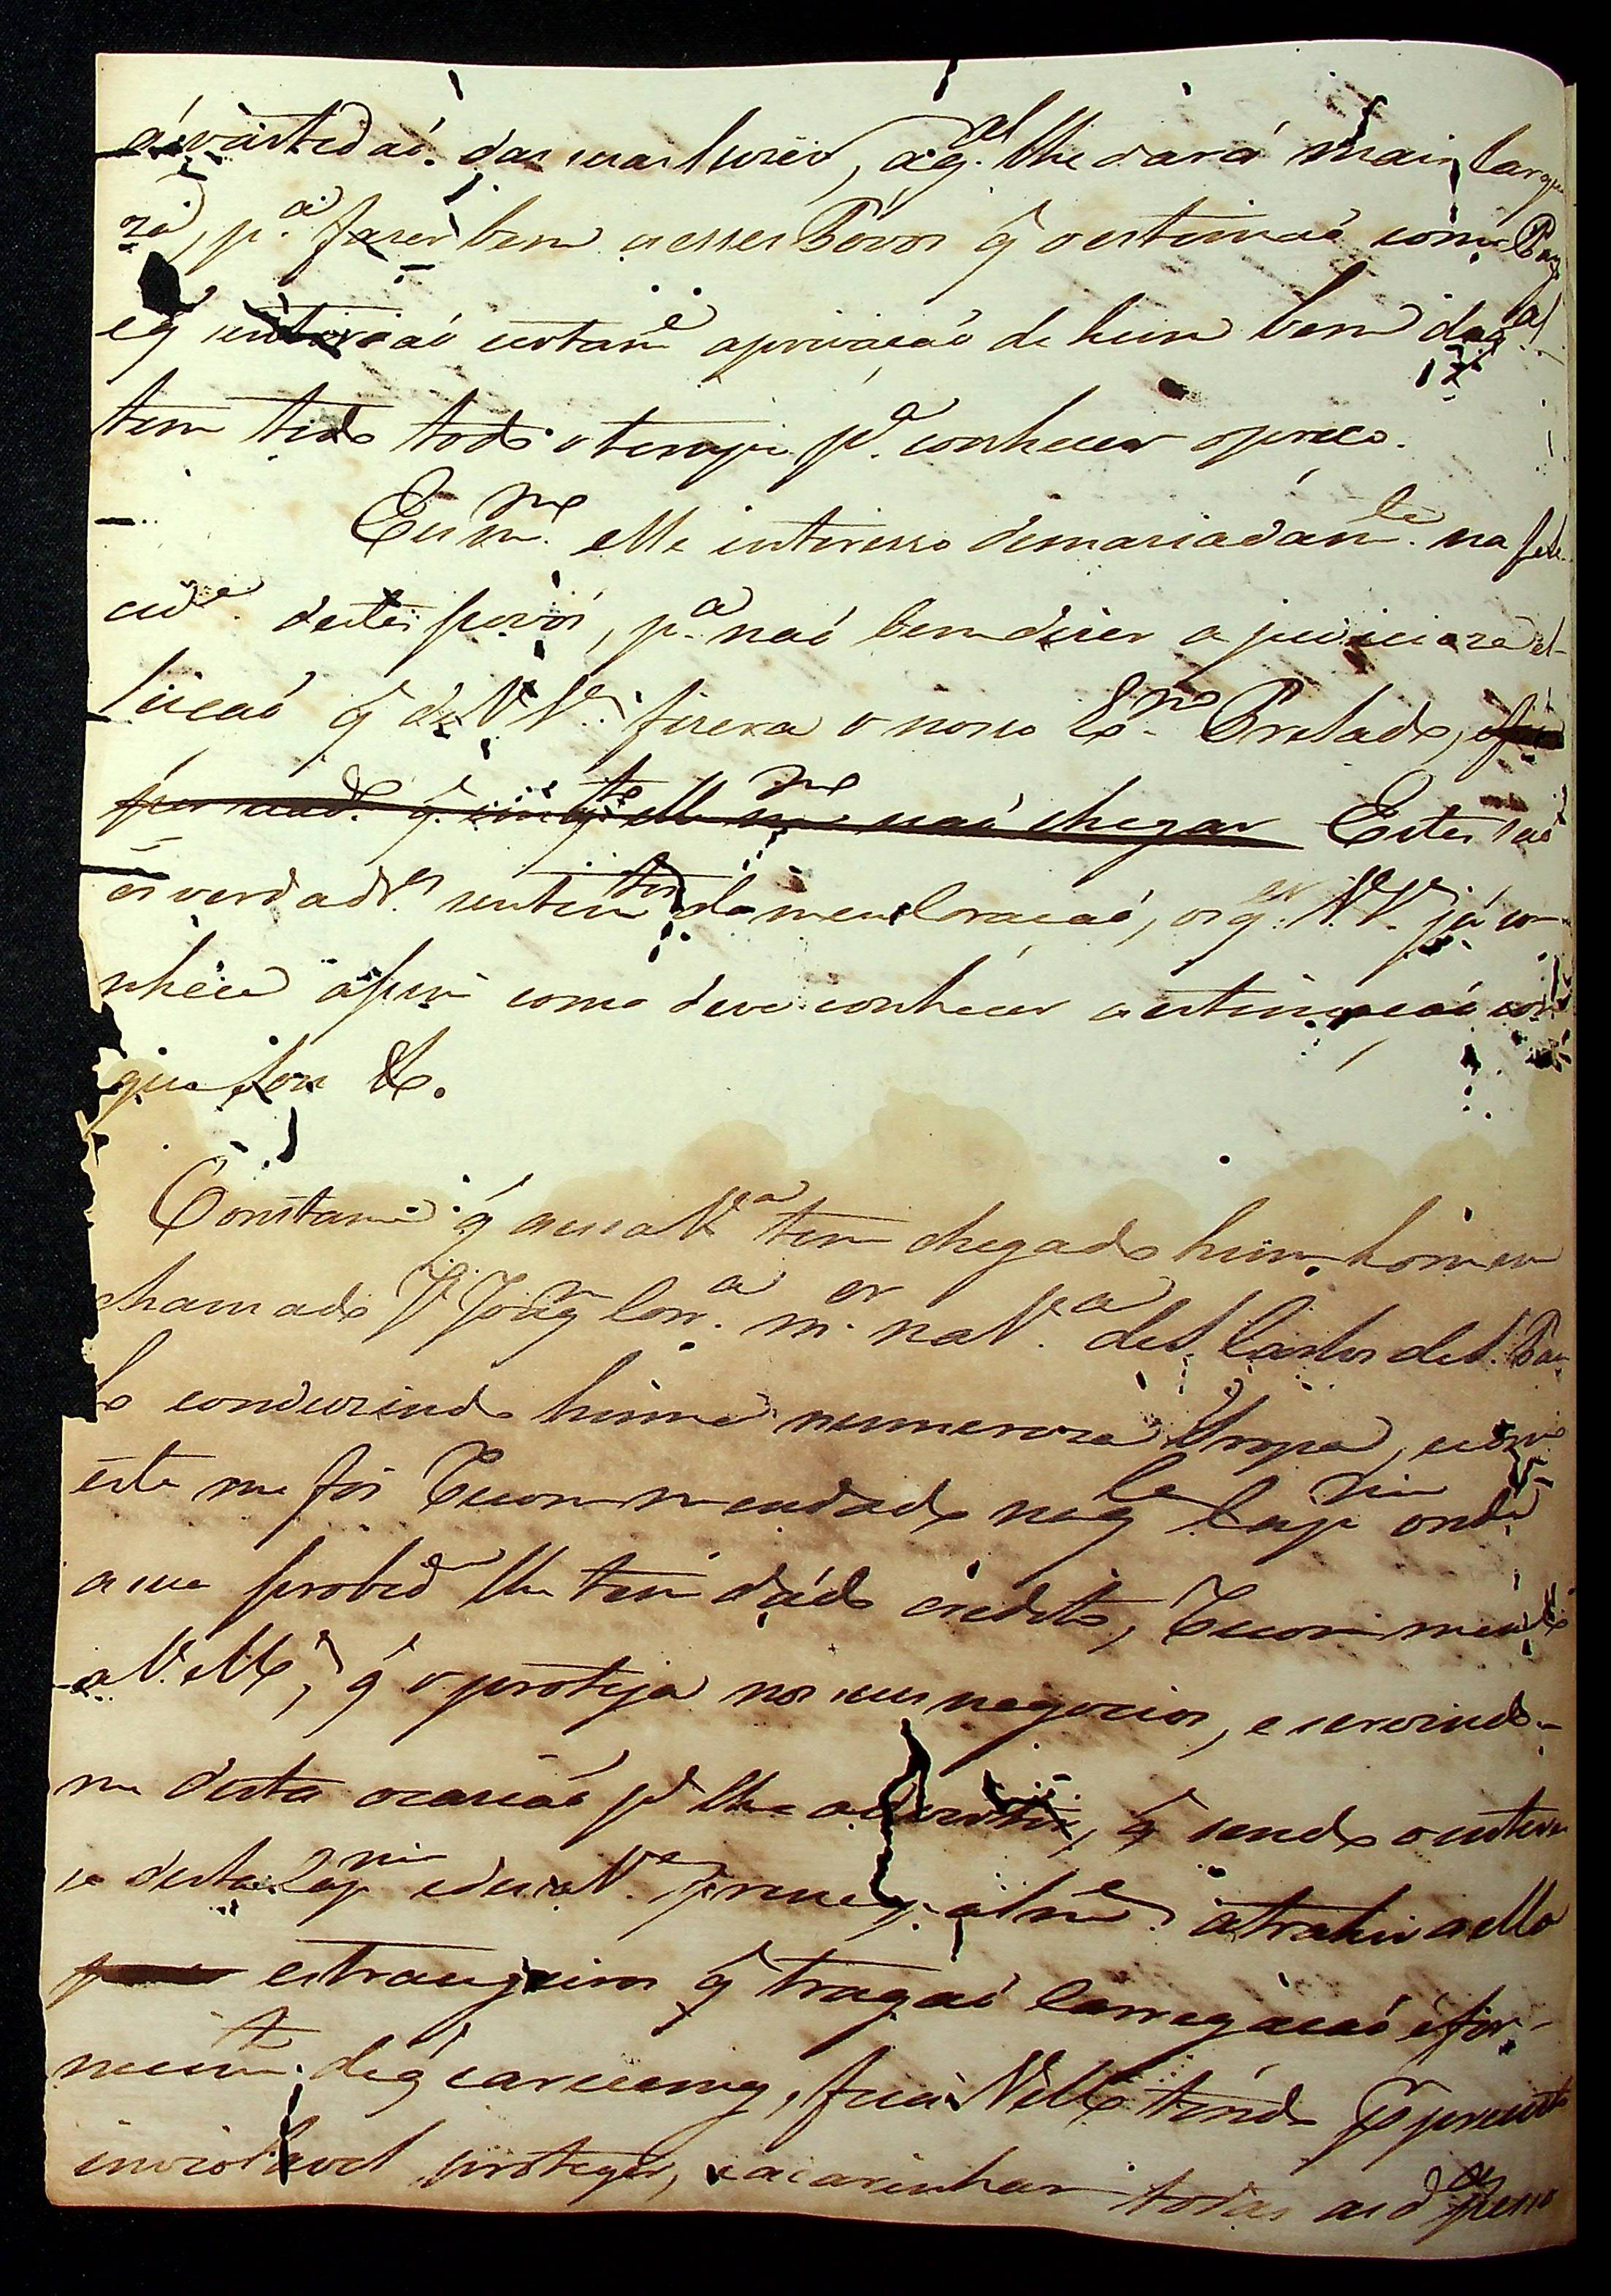 á vastedaõ das suas luzes, aq.al lhe dará mais largue
za, p.a fazer bem a esses Póvos q̃ o estimaõ como Pay
e q̃ sentiriaõ certam.e a privaçaõ de hum bem do q.al
tem tido todo o tempo p.a conhecer o preço.
Eu m.mo me interesso demasiadam.te na feli-
cid.e destes povos, p.a naõ bemdizer a judicioza el-
leiçaõ q̃ de V. S.a fizera o nosso Ex.mo Prelado,
q̃ naõ chegar Estes saõ
os verdadr.os sentim.tos do meu Coraçaõ, os q.es V. S. já co-
nhece assim como deve conhecer a estimaçaõ com
que sou &.
Constame q̃ a essa V.a tem chegado hum homem
chamado J. Joaq.m Corr.a m.or na V.a de S. Carlos de S. Pau
lo conduzindo huma numeroza Tropa, e como
este me foi Recommendado naq.la Cap.nia onde
a sua probid.e lhe tem dado credito, Recommendo
a V. M.ce, q̃ o proteja nos seus negocios, e servindo-
me desta ocasiaõ p.a lhe advertir, q̃ sendo o intere
ce desta Cap.nia e dessa V.a principalm.e atrahir a ella
estrangeiros q̃ tragaõ carregaçaõ e for-
necim.to de q̃ carecemos, fica V. M.ce tendo p.r preceito
inviolavel proteger, e acarinhar todas as d.as pesso